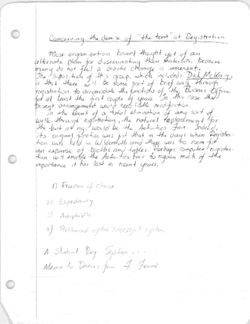 Concerning the demise of "the tent" at Registration
Most organizations haven't thought yet of an
alternate plan for disseminating their materials, because
many do not feel a drastic change is imminent.
The supposition of this group, which includes Dick McVay,
is that there will be some sort of brief walk through
registration to accomodate the functions of the Business Office
for at least the first couple of years. In this case their
former arrangement would need little modification.
In the event of a total elimination of any sort of
walk-through registration, the natural replacement for
the tent as such would be the Activities Fair. Indeed,
its original function was just that in the days when registra-
tion was held in and there was no room for
an expanse of booths and tables. Perhaps computer registra-
tion will enable the Activities Fair to regain much of the
importance it has lost in recent years.
1) Freedom of Choice
2) Expediency
3) Adaptable
4) of the system
A Student Day System
Memo to from J.